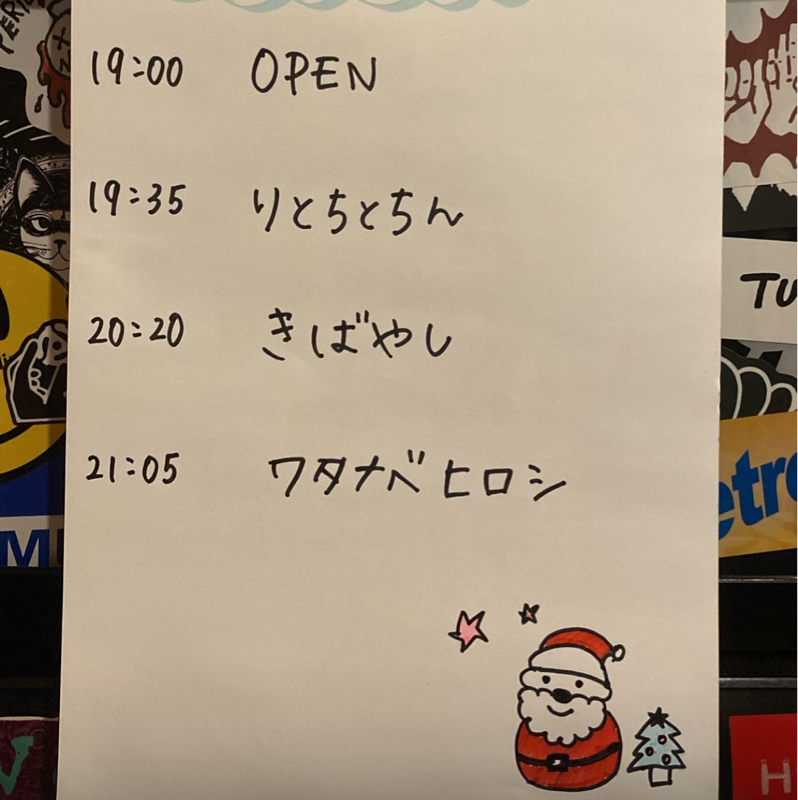 19:00 OPEN
19:35 りとちとちん
20:20 きばやし
21:05 ワタナベヒロシ
PERIO
TU
etro
MU
H